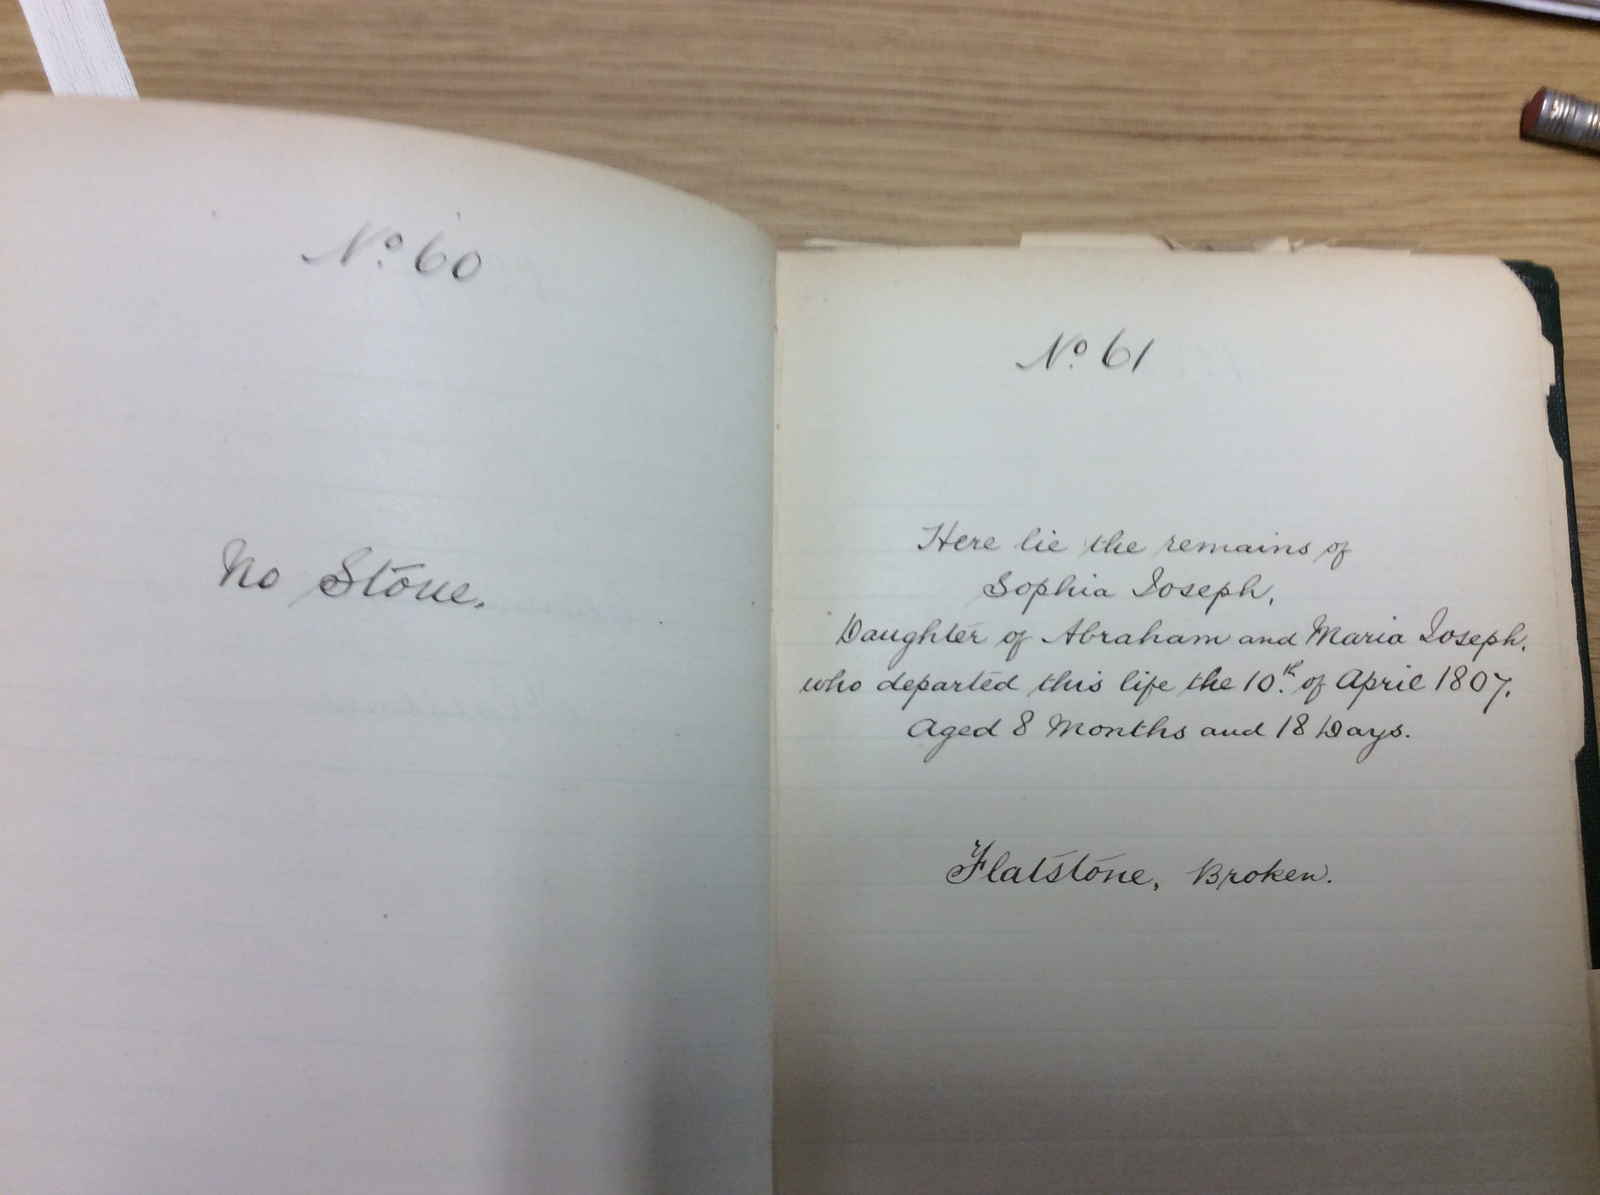 No. 60
No Stone.
No. 61
Here lie the remains of
Sophia Joseph,
Daughter of Abraham and Maria Joseph.
who departed this life the 10th. of April 1807.
Aged 8 Months and 18 Days.
Flatstone, Broken.